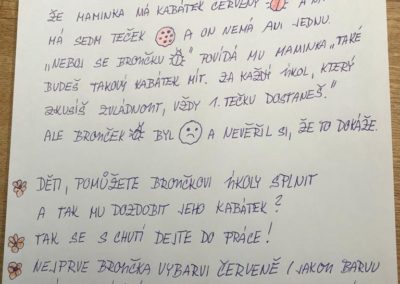 ŽE MAMINKA MÁ KABÁTEK ČERVENÝ A MÁ
MÁ SEDM TEČEK A ON NEMÁ ANI JEDNU.
"NEBOJ SE BROUČKU" POVÍDÁ MU MAMINKA, "TAKÉ
BUDEŠ TAKOVÝ KABÁTEK MÍT. ZA KAŽDÝ ÚKOL, KTERÝ
ZKUSÍŠ ZVLÁDNOUT, VŽDY 1. TEČKU DOSTANEŠ."
ALE BROUČEK BYL A NEVĚŘIL SI, ŽE TO DOKÁŽE.
DĚTI, POMŮŽETE BROUČKOVI ÚKOLY SPLNIT
A TAK MU DOZDOBIT JEHO KABÁTEK?
TAK SE S CHUTÍ DEJTE DO PRÁCE!
NEJPRVE BROUČKA VYBARVI ČERVENĚ / JAKOU BARVU